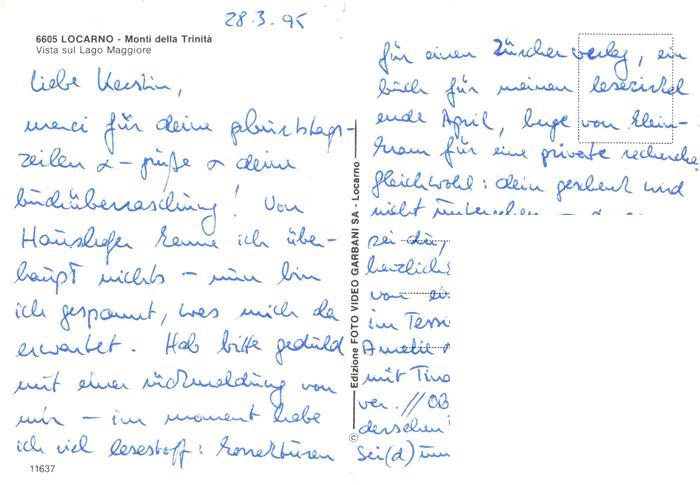 28.3.95
6605 LOCARNO - Monti della Trinità
Vista sul Lago Maggiore
liebe Kerstin,
merci für deine geburtstags-
zeilen & -grüße & deine
buchüberraschung! Von
Haushofer kenne ich über-
haupt nichts – nun bin
ich gespannt, was mich da
erwartet. Hab bitte geduld
mit einer rückmeldung von
mir – im moment habe
ich viel lesestoff: korrekturen
11637
© Edizione FOTO VIDEO GARBANI SA - Locarno
für einen Zürcher verlag, ein
buch für meinen lesezirkel
ende April, berge von klein-
kram für eine private recherche.
gleichwohl: dein geschenk wird
nicht
sei du,
herzlichs
von
im Tessi
Amelie
mit Tino
ver. // Ob
derselben
Sei(d) um